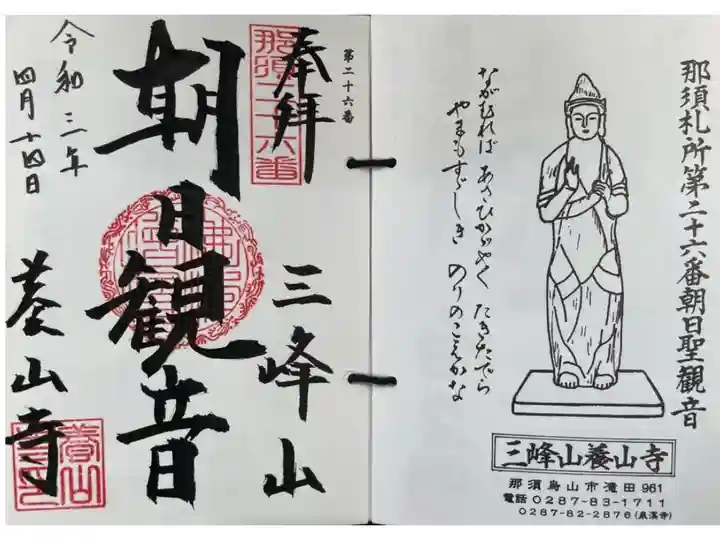 那須札所第二十六番朝日聖観音
ながむれば あさひかがやく たきたでら
やまもすゞしき のりのこゑかな
三峰山養山寺
那須烏山市滝田961
電話0287-83-1711
0287-82-2876(泉溪寺)
第二十六番
奉拝
那須二十六番
三峰山
朝日観音
養山寺
令和三年
四月十四日